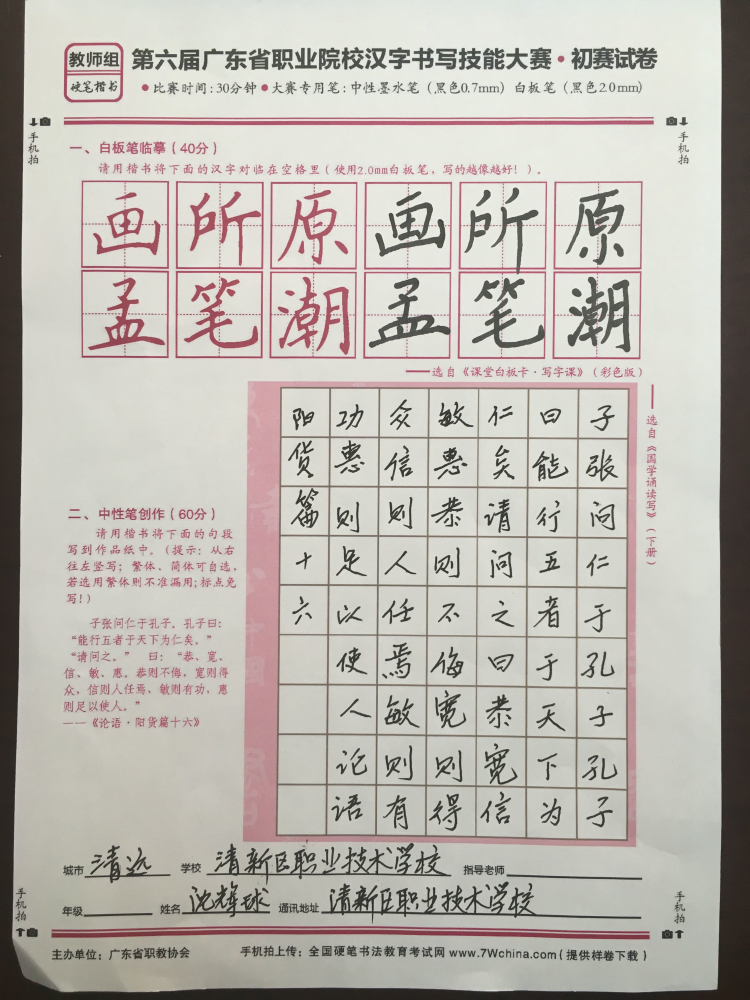 教师组
硬笔楷书
第六届广东省职业院校汉字书写技能大赛·初赛试卷
●比赛时间:30分钟●大赛专用笔:中性墨水笔(黑色0.7mm) 白板笔(黑色2.0mm)
手机拍
手机拍
一、白板笔临摹(40分)
请用楷书将下面的汉字对临在空格里(使用2.0mm白板笔,写的越像越好!)。
画所原画所原
孟笔潮孟笔潮
——选自《课堂白板卡·写字课》(彩色版)
——选自《国学诵读写》(下册)
子张问仁于孔子孔子
曰能行五者于天下为
仁矣请问之曰恭宽信
敏惠恭则不侮宽则得
众信则人任焉敏则有
功惠则足以使人论语
阳货篇十六
二、中性笔创作(60分)
请用楷书将下面的句段
写到作品纸中。(提示:从右
往左竖写;繁体、简体可自选,
若选用繁体则不准漏用;标点免
写!)
子张问仁于孔子。孔子曰:
“能行五者于天下为仁矣。”
“请问之。” 曰:“恭、宽、
信、敏、惠。恭则不侮,宽则得
众,信则人任焉,敏则有功,惠
则足以使人。”
——《论语·阳货篇十六》
城市 清远 学校 清新区职业技术学校 指导老师
年级 姓名 沈锋球 通讯地址 清新区职业技术学校
手机拍
手机拍
主办单位:广东省职教协会 手机拍上传:全国硬笔书法教育考试网 www.7Wchina.com(提供样卷下载)